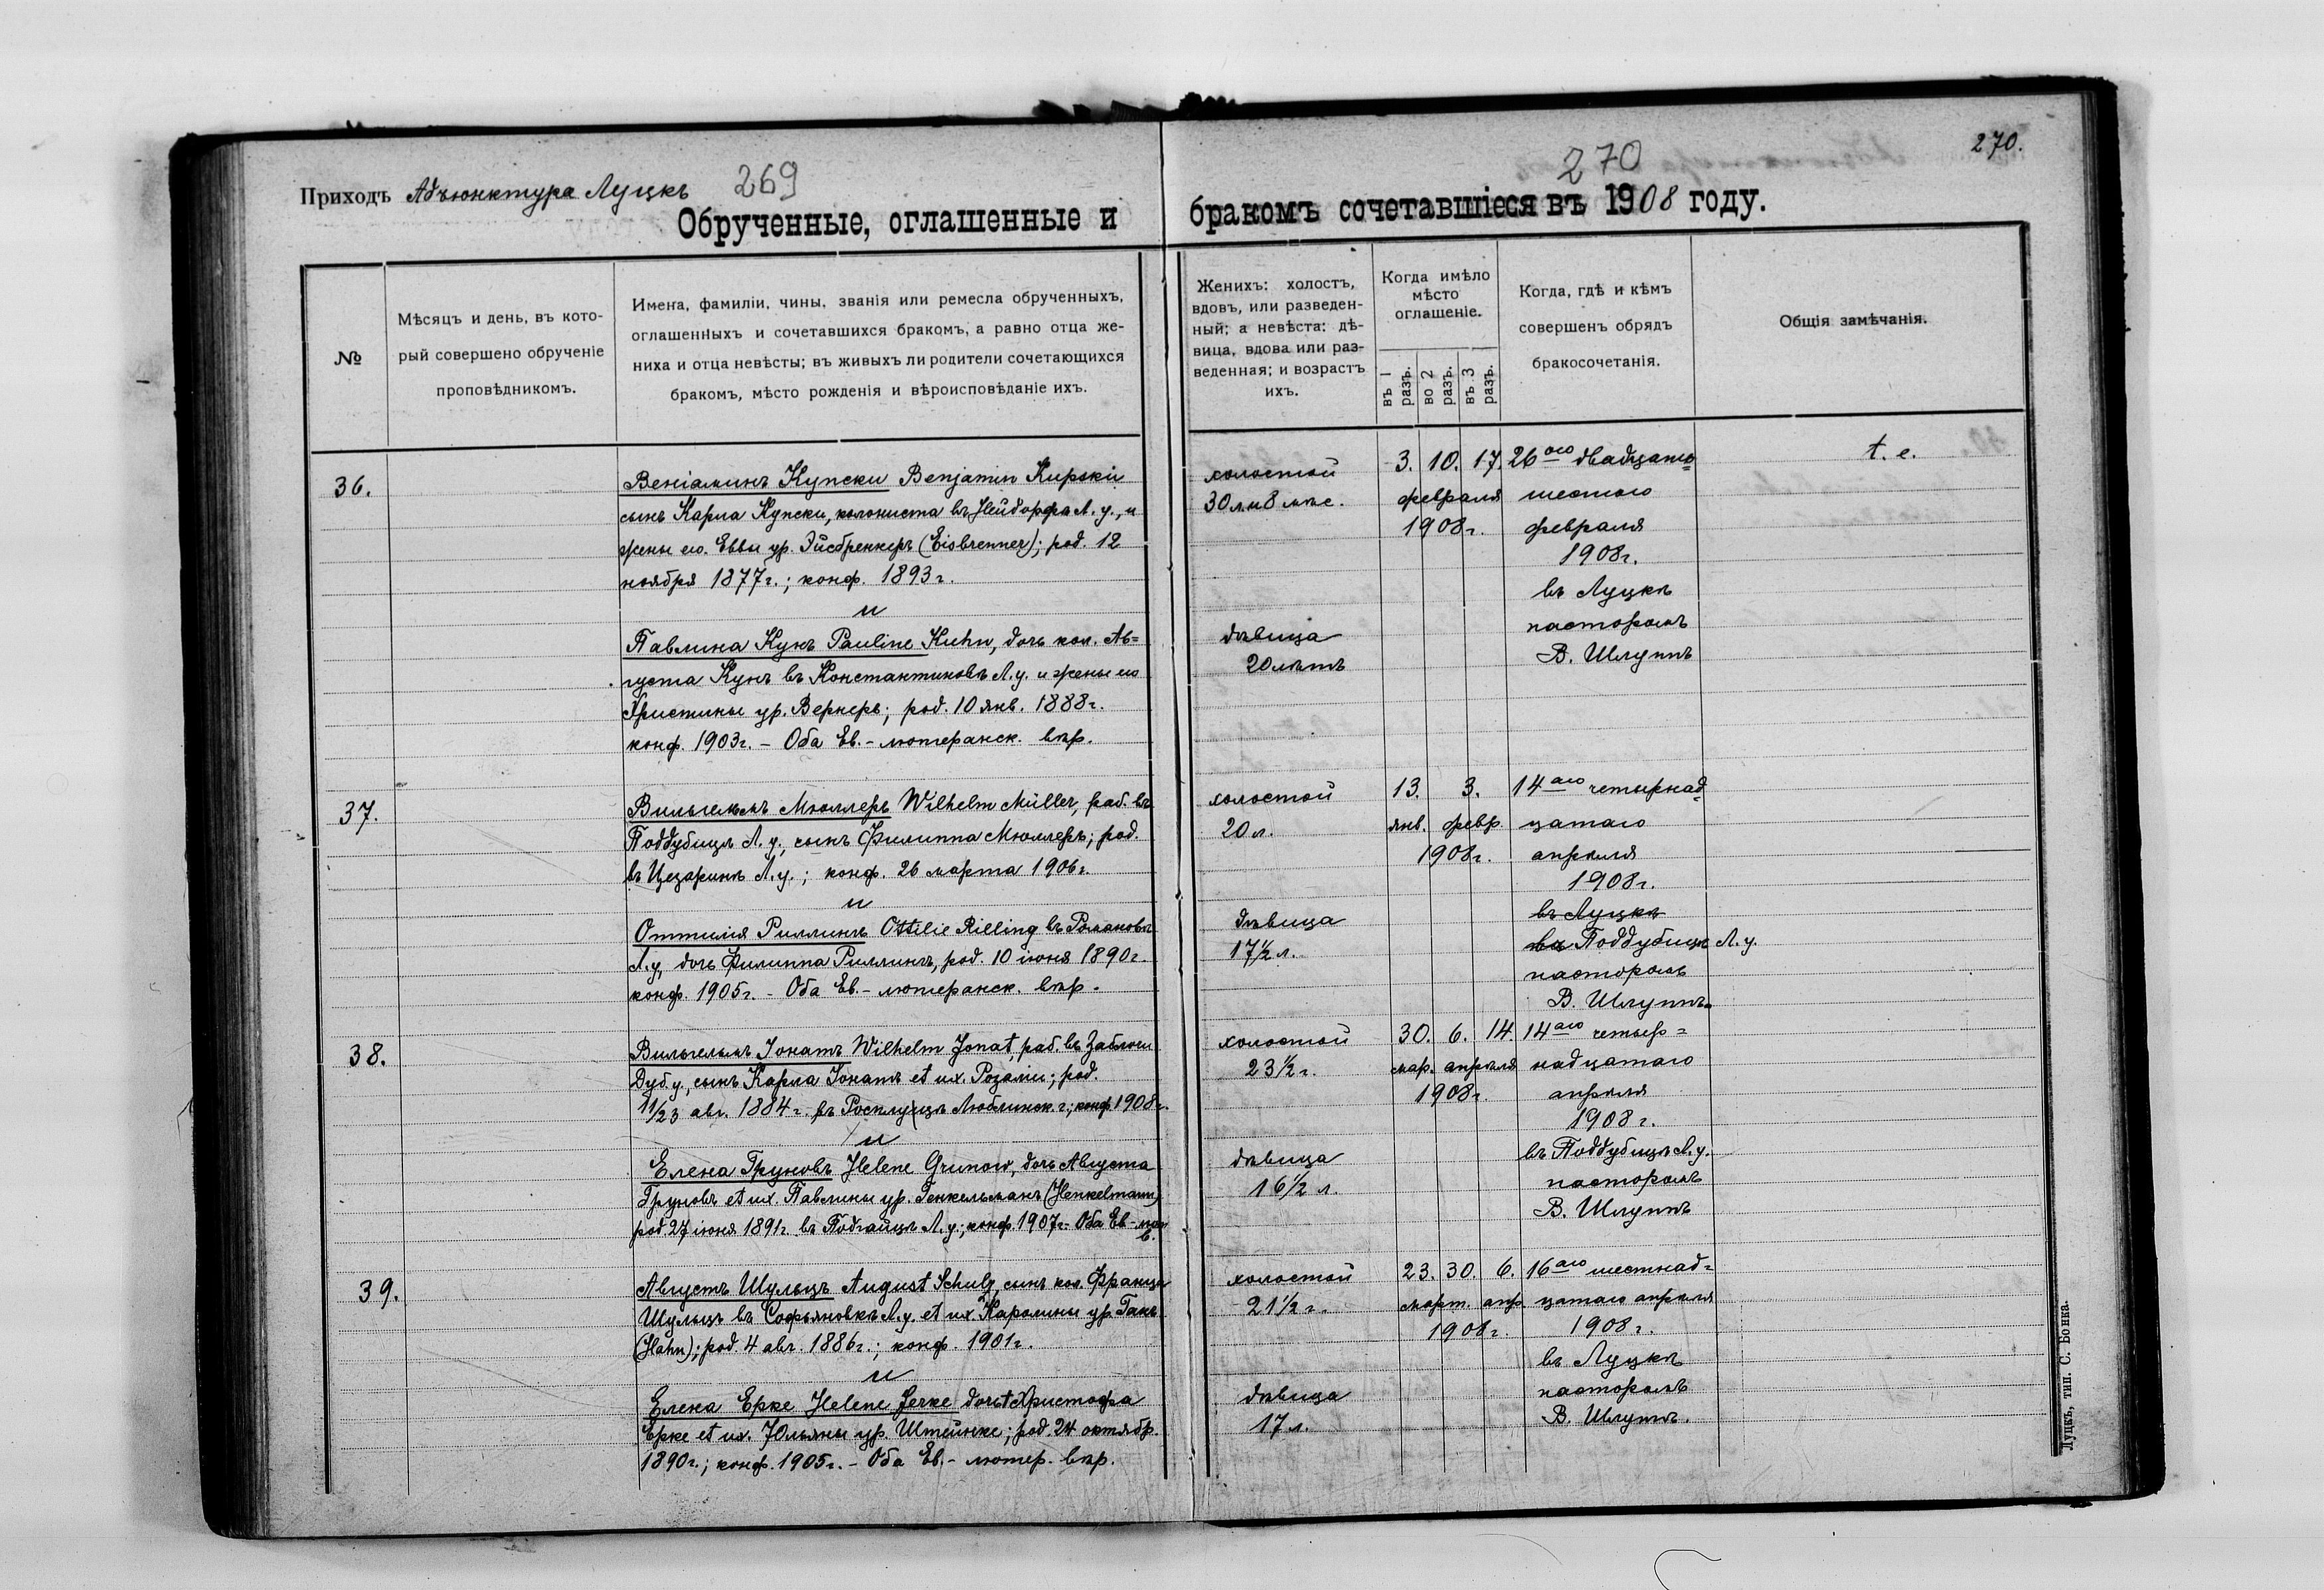 Приходъ Адъюнктура Луцкъ 269
Обрученные, оглашенные и
№
Мѣсяцъ и день, въ кото-
рый совершено обрученіе
проповѣдникомъ.
Имена, фамиліи, чины, званія или ремесла обрученныхъ,
оглашенныхъ и сочетавшихся бракомъ, а равно отца же-
ниха и отца невѣсты; въ живыхъ ли родители сочетающихся
бракомъ, мѣсто рожденія и вѣроисповѣданіе ихъ.
36.
Веніаминъ Купски Benjamin Kupski
сынъ Карла Купски, колониста въ Нейдорфѣ Л. у., и
жены его Еввы ур. Эйсбреннеръ (Eisbrenner); род. 12
ноября 1877г.; конф. 1893г.
и
Павлина Кунъ Pauline Kuhn, дочь кол. Ав=
густа Кунъ въ Константиновкѣ Л.у. и жены его
Христины ур. Вернеръ; род. 10 янв. 1888г.
конф. 1903г. - Оба Ев.-лютеранск. вѣр.
37.
Вильгельмъ Мюллеръ Wilhelm Müller, раб. въ
Поддубицѣ Л. у., сынъ Филиппа Мюллеръ; род.
въ Цезаринѣ Л.у.; конф. 26 марта 1906г.
и
Оттилія Риллингъ Ottilie Rilling въ Романовкѣ
Л.у, дочь Филиппа Риллингъ, род. 10 іюня 1890г.
конф. 1905г. - Оба Ев.-лютеранск. вѣр.
38.
Вильгельмъ Іонатъ Wilhelm Jonat, раб. въ Заблоцы
Дуб.у., сынъ Карла Іонатъ et ux. Розаліи; род.
11/23 авг. 1884г. въ Люблинск. г.; конф. 1908г.
и
Елена Груновъ Helene Grunow, дочь Августа
Груновъ et ux. Павлины ур. Генкельманъ (Henkelmann)
род. 27 іюня 1891г. въ Подгайцѣ Л. у.; конф. 1907г. Оба Ев.-лют.
в.
39.
Августъ Шульцъ August Schulz, сынъ кол. Франца
Шульцъ въ Софьяновкѣ Л.у. et ux. Каролины ур. Ганъ
(Hahn); род. 4 авг. 1886г.; конф. 1901г.
и
Елена Ерке Helene Jerke дочь † Христофа
Ерке et ux. Юльяны ур. Штейнке; род. 24 октябр.
1890г.; конф. 1905г. - Оба Ев.- лютер. вѣр.
270
270.
бракомъ сочетавшіеся въ 1908 году.
Женихъ: холостъ,
вдовъ, или разведен-
ный; а невѣста: дѣ-
вица, вдова или раз-
веденная; и возрастъ
ихъ.
Когда имѣло
мѣсто
оглашеніе.
въ 1 разъ.
во 2 разъ.
въ 3 разъ.
Когда, гдѣ и кѣмъ
совершенъ обрядъ
бракосочетанія.
Общія замѣчанія.
холостой 3. 10. 17. 26ого двадцать t. e.
30 л. и 8 мѣс. февраля шестого
1908г. февраля
1908г.
въ Луцкѣ
дѣвица пасторомъ
20 лѣтъ В. Шлуппъ
холостой 13. 3. 14аго четырнад-
20 л. янв. февр. цатаго
1908г. апрѣля
1908г.
дѣвица въ Луцкѣ
17½ л. въ Поддубицѣ Л. у.
пасторомъ
В. Шлуппъ
холостой 30. 6. 14. 14аго четыр=
23½ г. мар. апрѣля надцатаго
1908г. апрѣля
1908г.
дѣвица въ Поддубицѣ Л.у.
16½ л. пасторомъ
В. Шлуппъ
холостой 23. 30. 6. 16аго шестнад=
21½ г. март. апр. цатаго апрѣля
1908г. 1908г.
въ Луцкѣ
дѣвица пасторомъ
17 л. В. Шлуппъ.
Луцкъ, тип. С. Бонка.